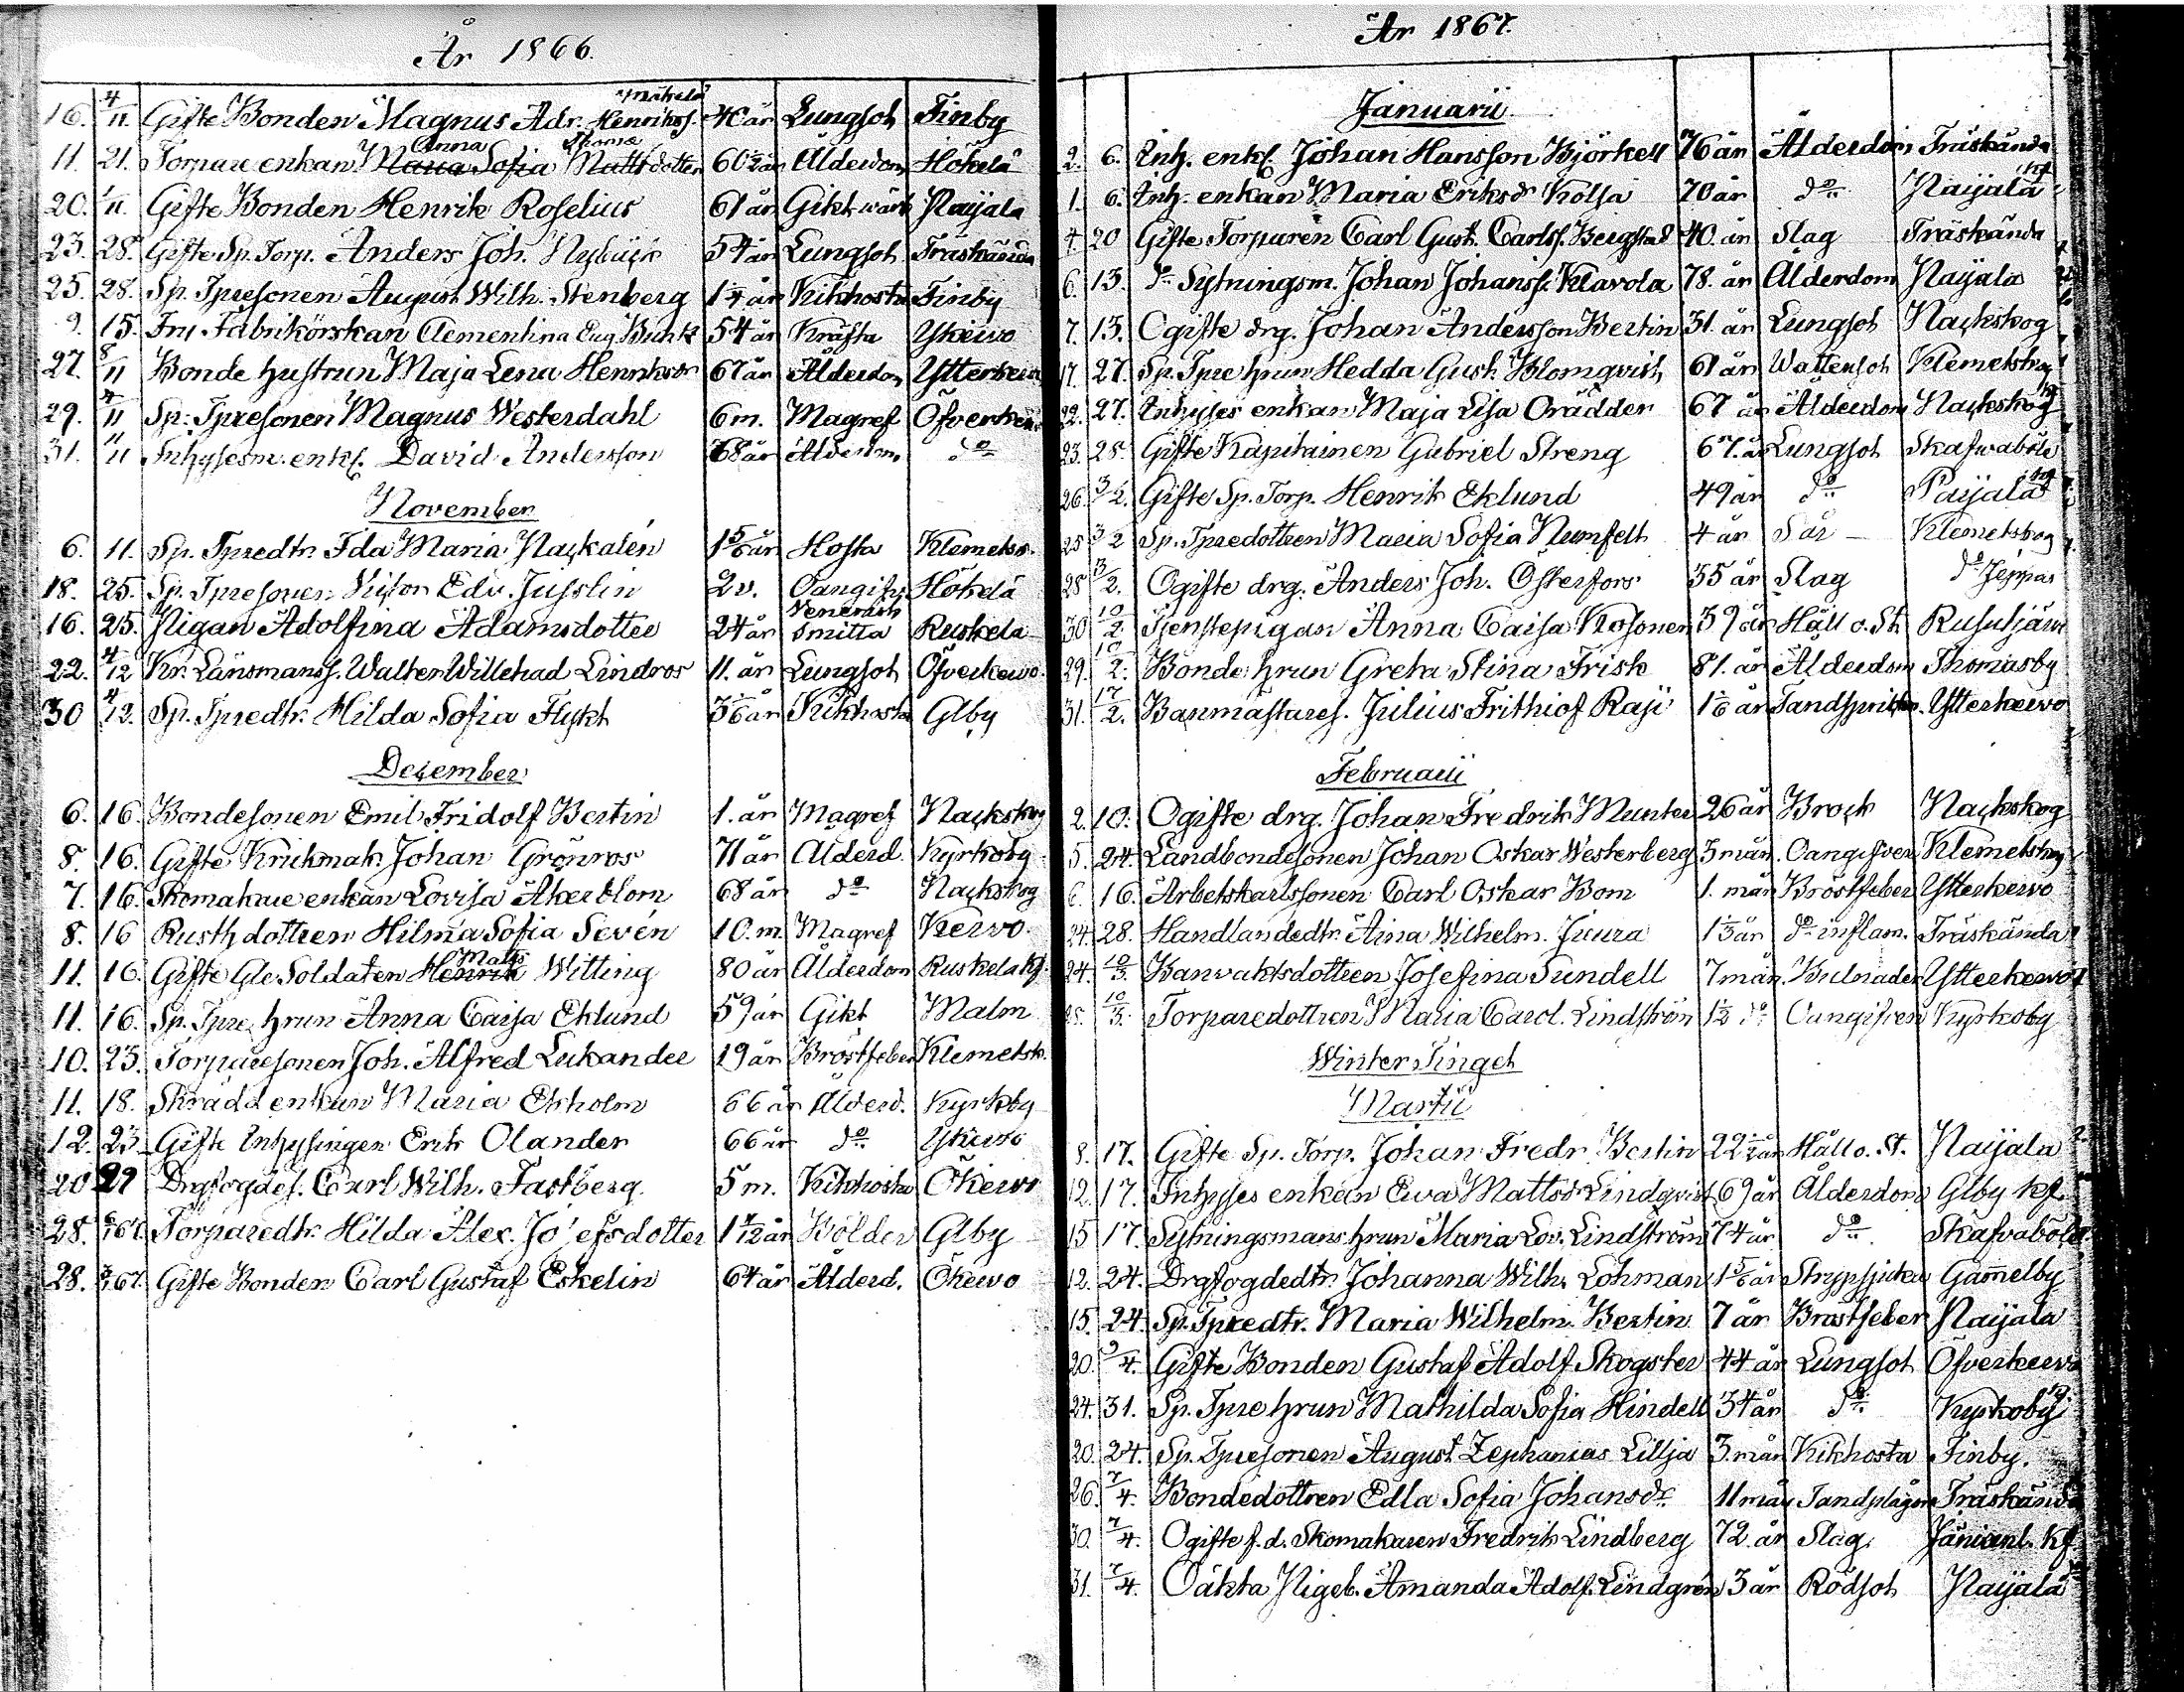 År 1866.
16. 4/11 Gifte Bonden Magnus Adr. Henrikss. Mäkelä 40 år Lungsot Finby
11. 21. Torpare enkan Maria Anna Sofia Matts Thomæ dotter 60 1/2 år Ålderdom Hökelä
20. 1/11 Gifte Bonden Henrik Roselius 61 år Gikt wärk Naijala
23. 28. Gifte Sp. Torp. Anders Joh. Nybäck 54 år Lungsot Träskända
25. 28. Sp. Tpresonen August Wilh. Stenberg 1 1/4 år Kikhosta Finby
9. 15. Fru Fabrikörskan Clementina Eug. 54 år Kräfta Ykerwo
27. 8/11 Bonde hustrun Maja Lena Henriksdr 67 år Ålderdom Ytterkerwo
29. 4/11 Sp. Tpresonen Magnus Westerdahl 6 m. Magref Öfverkerwo
31. 11/11 Inhysesm. enkl. David Andersson 68 år Ålderdom. do
November
6. 11. Sp. Tpredtr. Ida Maria Nackalén 1 5/6 år Hosta Klemetsk.
18. 25. Sp. Tpresonen Victor Edv. Jusslin 2 v. Oangifv. Hökelä
16. 25. Pigan Adolfina Adamsdotter 24 år Venerisk Smitta Ruskela
22. 4/12 Kr. Länsmanss. Walter Willehad Lindros 11. år Lungsot Öfverkerwo.
30 4/12. Sp. Tpredtr. Hilda Sofia Flykt 3 1/6 år Kikhosta Glby
December
6. 16. Bondesonen Emil Fridolf Bertin 1. år Magref Nackskog
8. 16. Gifte Krukmak. Johan Grönros 71 år Ålderd. Kyrkoby
7. 16. Skomakare enkan Lovisa Åkerblom 68 år do Nackskog
8. 16 Rusth dottren Hilma Sofia Sevén 10. m. Magref Kerwo.
11. 16. Gifte Gle Soldaten Henrik Matts Witting 80 år Ålderdom Ruskela kf.
11. 16. Sp. Tpre hrun Anna Caisa Eklund 59 år Gikt Malm
10. 23. Torparesonen Joh. Alfred Lukander 19 år Bröstfeber Klemetsk.
11. 18. Skrädd enkan Maria Ekholm 66 år Ålderd. Kyrkoby
12. 23 Gifte Inhysingen Erik Olander 66 år do Ykerwo
20 29 Drgfogdes. Carl Wilh. Fastberg. 5 m. Kikhosta Ökerwo
28. 6/1 67. Torparedtr. Hilda Alex. Josefsdotter 1 7/12 år Bölder Glby
28. 67. Gifte Bonden Carl Gustaf Eskelin 64 år Ålderd. Ökerwo
År 1867.
Januarii
2. 6. Inh. enkl. Johan Hansson Björkell 76 år Ålderdom Träskända
1. 6. Inh. enkan Maria Eriksdr Kolsa 70 år do Naijala kf
4. 20 Gifte Torparen Carl Gust. Carlss. Bergstad 40. år Slag Träskända
6. 13. do Sytningsm. Johan Johanss. Klavola 78. år Ålderdom Naijala
7. 13. Ogifte drg. Johan Andersson Bertin 31. år Lungsot Nackskog
17. 27. Sp. Tpre hrun Hedda Gust. Blomqvist 61 år Wattensot Klemetskog
22. 27. Inhyses enkan Maja Lisa Orädder 67 år Ålderdom Nackskog kf
23. 25. Gifte Kapitainen Gabriel Streng 67. år Lungsot Skafvaböle
26. 3/2. Gifte Sp. Torp. Henrik Eklund 49 år do Paijala kf
25 3/2 Sp. Tpredottren Maria Sofia Numfelt 4 år Sår — Klemetskog
28 3/2. Ogifte drg. Anders Joh. Österfors 35 år Slag do Jeppas
30 10/2 Tjenstepigan Anna Caisa Kosonen 39 år Håll o. St. Rusutjärvi
29. 10/2. Bonde hrun Greta Stina Frisk 81. år Ålderdom Thomasby
31. 17/2. Banmästares. Julius Frithiof Raji 1 1/6 år Tandsprickn. Ytterkerwo
Februarii
2. 10. Ogifte drg. Johan Fredrik Munter 26 år Brock Nackskog
5. 24. Landbondesonen Johan Oskar Westerberg 3 mån. Oangifven Klemetskog
6. 16. Arbetskarlssonen Carl Oskar Bom 1. mån Bröstfeber Ytterkerwo
24. 28. Handlandedtr. Aina Wilhelm. Juura 1 1/3 år do inflam. Träskända
24. 10/3. Banvaktsdottren Josefina Sundell 7 mån. Bulnader Ytterkerwo
25. 10/3. Torparedottren Maria Carol. Lindström 1 1/2 do Oangifven Kyrkoby
Winter Tinget
Martii
8. 17. Gifte Sp. Torp. Johan Fredr. Bertin 22 1/2 år Håll o. St. Naijala
12. 17. Inhyses enkan Ewa Mattsdr Lindqvist 69 år Ålderdom Glby kf.
15 17. Sytningsmans hrun Maria Lov. Lindström 74 år do Skafvaböle
12. 24. Drgfogdedtr. Johanna Wilh. Lohman 1 5/6 år Strypsjuka Gammelby
15. 24. Sp. Tpredtr. Maria Wilhelm. Bertin 7 år Bröstfeber Naijala
20. 9/4. Gifte Bonden Gustaf Adolf Skogster 44 år Lungsot Öfverkerwo
24. 31. Sp. Tpre hrun Mathilda Sofia Hindell 34 år do Kyrkoby
20. 24. Sp. Tpresonen August Zephanias Lillja 3. mån Kikhosta Finby.
26. 7/4. Bondedottren Edla Sofia Johansdr. 11 mån Tandplågor Träskända
30. 7/4. Ogifte f. d. Skomakaren Fredrik Lindberg 72 år Slag. kf.
31. 7/4. Oäkta Pigeb. Amanda Adolf. Lindgrén 3 år Rödsot Naijala